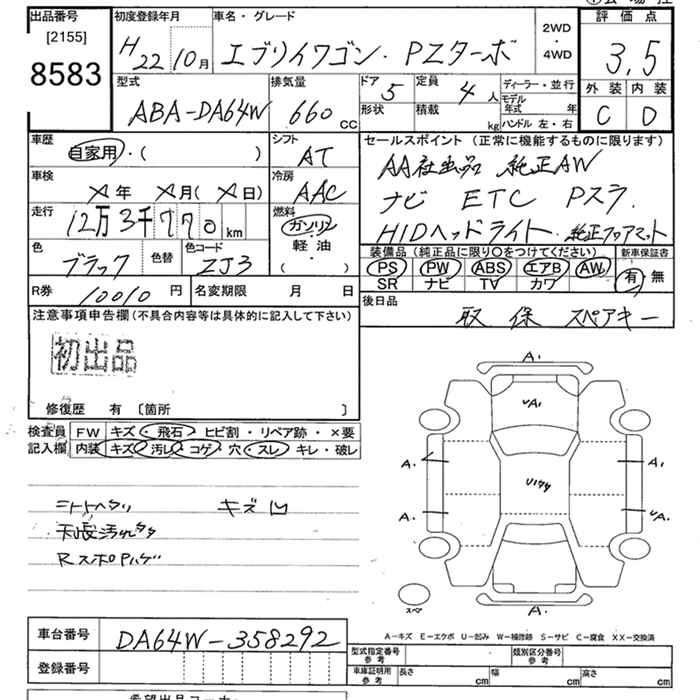 出品番号
[2155]
8583
初度登録年月
H22 10月
車名・グレード
エブリイワゴン・PZターボ
2WD
・
4WD
評価点
3.5
外装 内装
C D
型式
ABA-DA64W
排気量
660 cc
ドア 5
形状
定員 4 人
積載 kg
ディーラー・並行
モデル年式 年
ハンドル 左・右
車歴
自家用・( )
シフト
AT
車検
メ年 メ月(メ日)
冷房
AAC
走行
12万3千770 km
燃料
ガソリン
軽油
( ・ )
色
ブラック
色替
色コード
ZJ3
R券 10010 円
名変期限 月 日
セールスポイント (正常に機能するものに限ります)
AA社出品 純正AW
ナビ ETC Pスラ
HIDヘッドライト・純正フロアマット
装備品 (純正品に限り○をつけてください)
PS PW ABS エアB AW
SR ナビ TV カワ
新車保証書
有・無
後日品
取 保 スペアキー
注意事項申告欄(不具合内容等は具体的に記入して下さい)
初出品
修復歴 有 〔箇所 〕
検査員記入欄
FW キズ・飛石・ヒビ割・リペア跡・×要
内装 キズ・汚レ・コゲ・穴・スレ・キレ・破レ
シートヘタリ キズ凹
天張汚れ
RスポPハゲ
A.
A.
A.
A.
A.
A.
スペア
A-キズ E-エクボ U-凹み W-補修跡 S-サビ C-腐食 XX-交換済
車台番号 DA64W-358292
登録番号
型式指定番号
参考
類別区分番号
参考
車庫証明用
参考
長さ cm
幅 cm
高さ cm